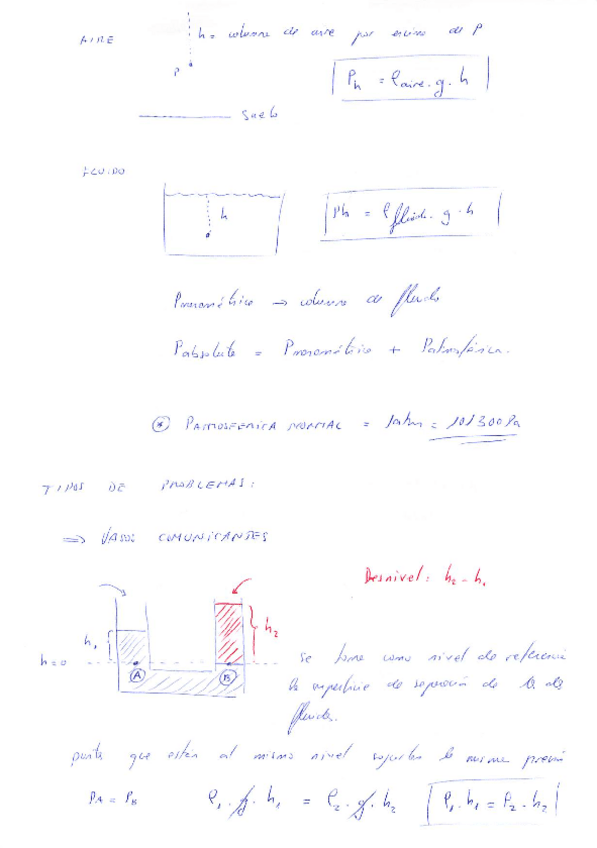 AIRE
h = columna de aire por encima de P
P
Ph = ρaire · g · h
suelo
FLUIDO
h
Ph = ρfluido · g · h
Pmanométrica → columna de fluido
Pabsoluta = Pmanométrica + Patmosférica.
* PATMOSFERICA NORMAL = 1atm = 101300Pa
TIPOS DE PROBLEMAS:
⇒ VASOS COMUNICANTES
Desnivel: h2 - h1
h1
h2
h=0
A
B
se toma como nivel de referencia
la superficie de separación de los dos
fluidos.
puntos que están al mismo nivel soportan la misma presión
PA = PB ρ1 · g · h1 = ρ2 · g · h2 ρ1 · h1 = ρ2 · h2